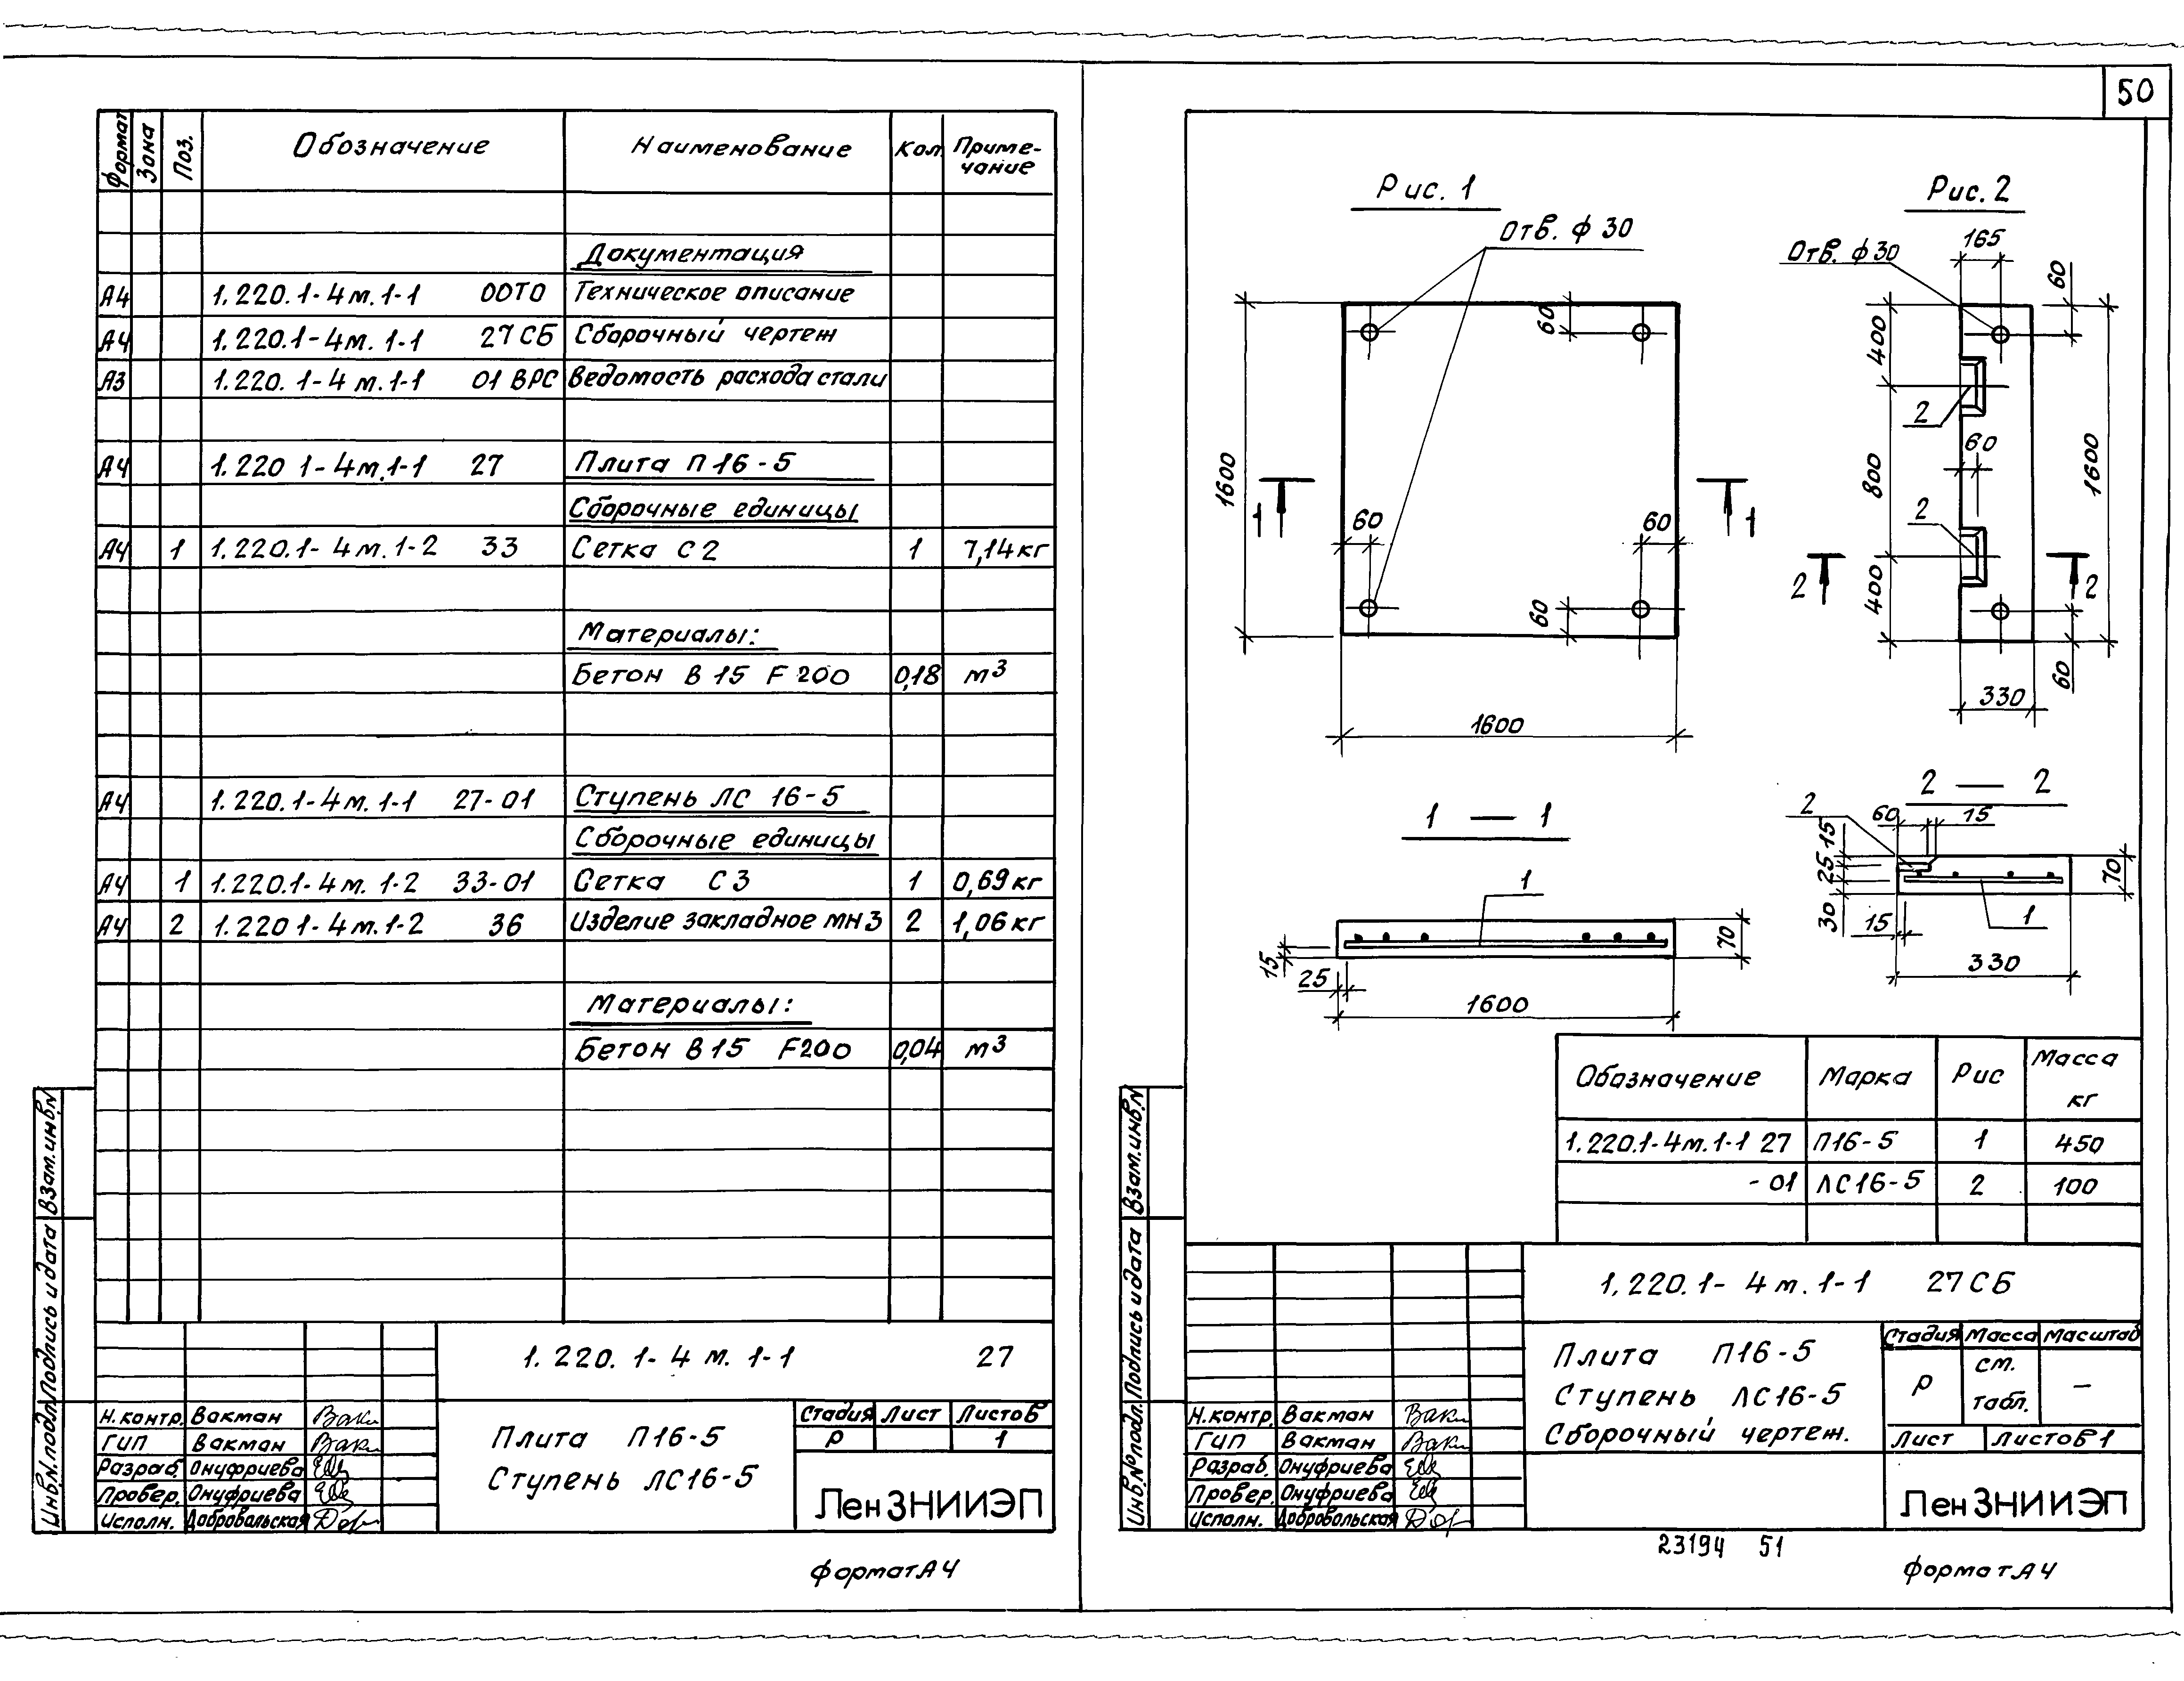 50
Формат Зона Поз. Обозначение Наименование Кол. Приме-чание
Документация
А4 1.220.1-4м.1-1 00ТО Техническое описание
А4 1.220.1-4м.1-1 27СБ Сборочный чертеж
А3 1.220.1-4м.1-1 01 ВРС Ведомость расхода стали
А4 1.220 1-4м.1-1 27 Плита П16-5
Сборочные единицы
А4 1 1.220.1-4м.1-2 33 Сетка С2 1 7,14кг
Материалы:
Бетон В15 F200 0,18 м³
А4 1.220.1-4м.1-1 27-01 Ступень ЛС 16-5
Сборочные единицы
А4 1 1.220.1-4м.1-2 33-01 Сетка С3 1 0,69кг
А4 2 1.220 1-4м.1-2 36 Изделие закладное МН3 2 1,06кг
Материалы:
Бетон В15 F200 0,04 м³
Инв.N.подл. Подпись и дата Взам.инв.N
1.220.1-4м.1-1 27
Н.контр. Вакман
ГИП Вакман
Разраб. Онуфриева
Провер. Онуфриева
Исполн. Добровольская
Плита П16-5
Ступень ЛС16-5
Стадия Лист Листов
Р 1
ЛенЗНИИЭП
Формат А4
Рис. 1
Отв. ф 30
60
1600
1 1
60 60
60
1600
Рис. 2
165
Отв. ф 30
60
400
2
60
800
1600
2
2 2
400
60
330
1 — 1
1
70
15
25
1600
2 — 2
2
60 15
15
25
30
70
15
1
330
Обозначение Марка Рис Масса кг
1.220.1-4м.1-1 27 П16-5 1 450
-01 ЛС16-5 2 100
Инв.№подл. Подпись и дата Взам.инв.N
1.220.1-4м.1-1 27СБ
Н.контр. Вакман
ГИП Вакман
Разраб. Онуфриева
Провер. Онуфриева
Исполн. Добровольская
Плита П16-5
Ступень ЛС16-5
Сборочный чертеж.
Стадия Масса Масштаб
Р см. табл. —
Лист Листов 1
ЛенЗНИИЭП
23194 51
Формат А4